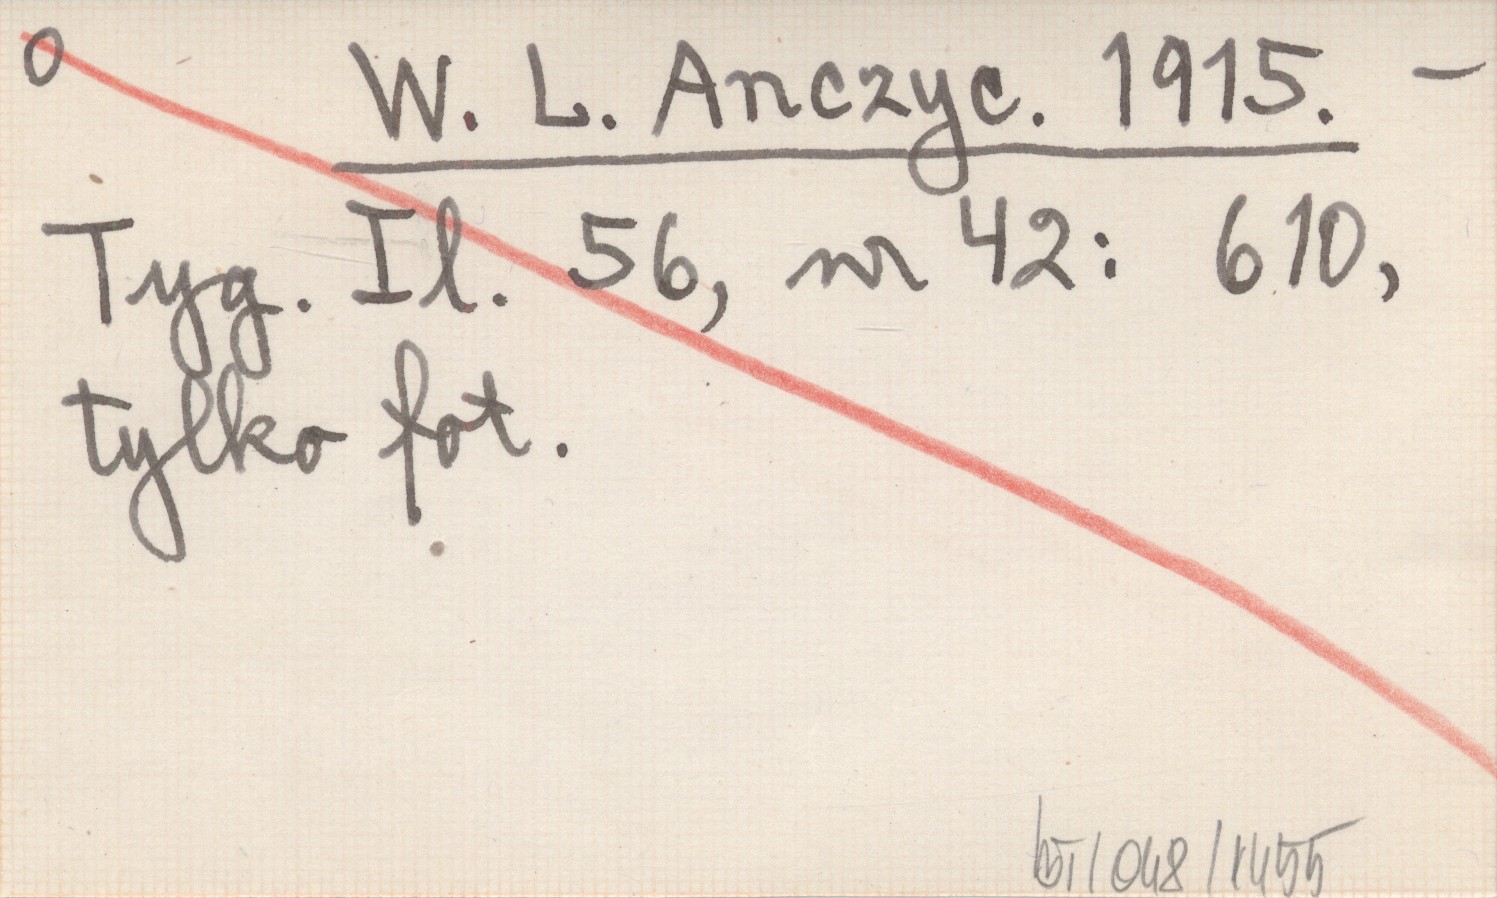 0 W. L. Anczyc. 1915. –
Tyg. Il. 56, nr 42: 610,
tylko fot.
/048/1455